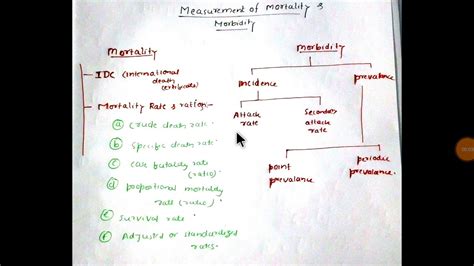 Measurement of Mortality &
Morbidity
Mortality
IDC (International
death
certificate)
Mortality Rate & ratio:-
(a) Crude death rate.
(b) Specific death rate.
(c) Case fatality rate
(ratio)
(d) proportional mortality
rate (ratio)
(e) Survival rate
(f) Adjusted or standardized
rates.
Morbidity
Incidence
prevalance
Attack
rate
Secondary
attack
rate
point
prevalance
periodic
prevalance.